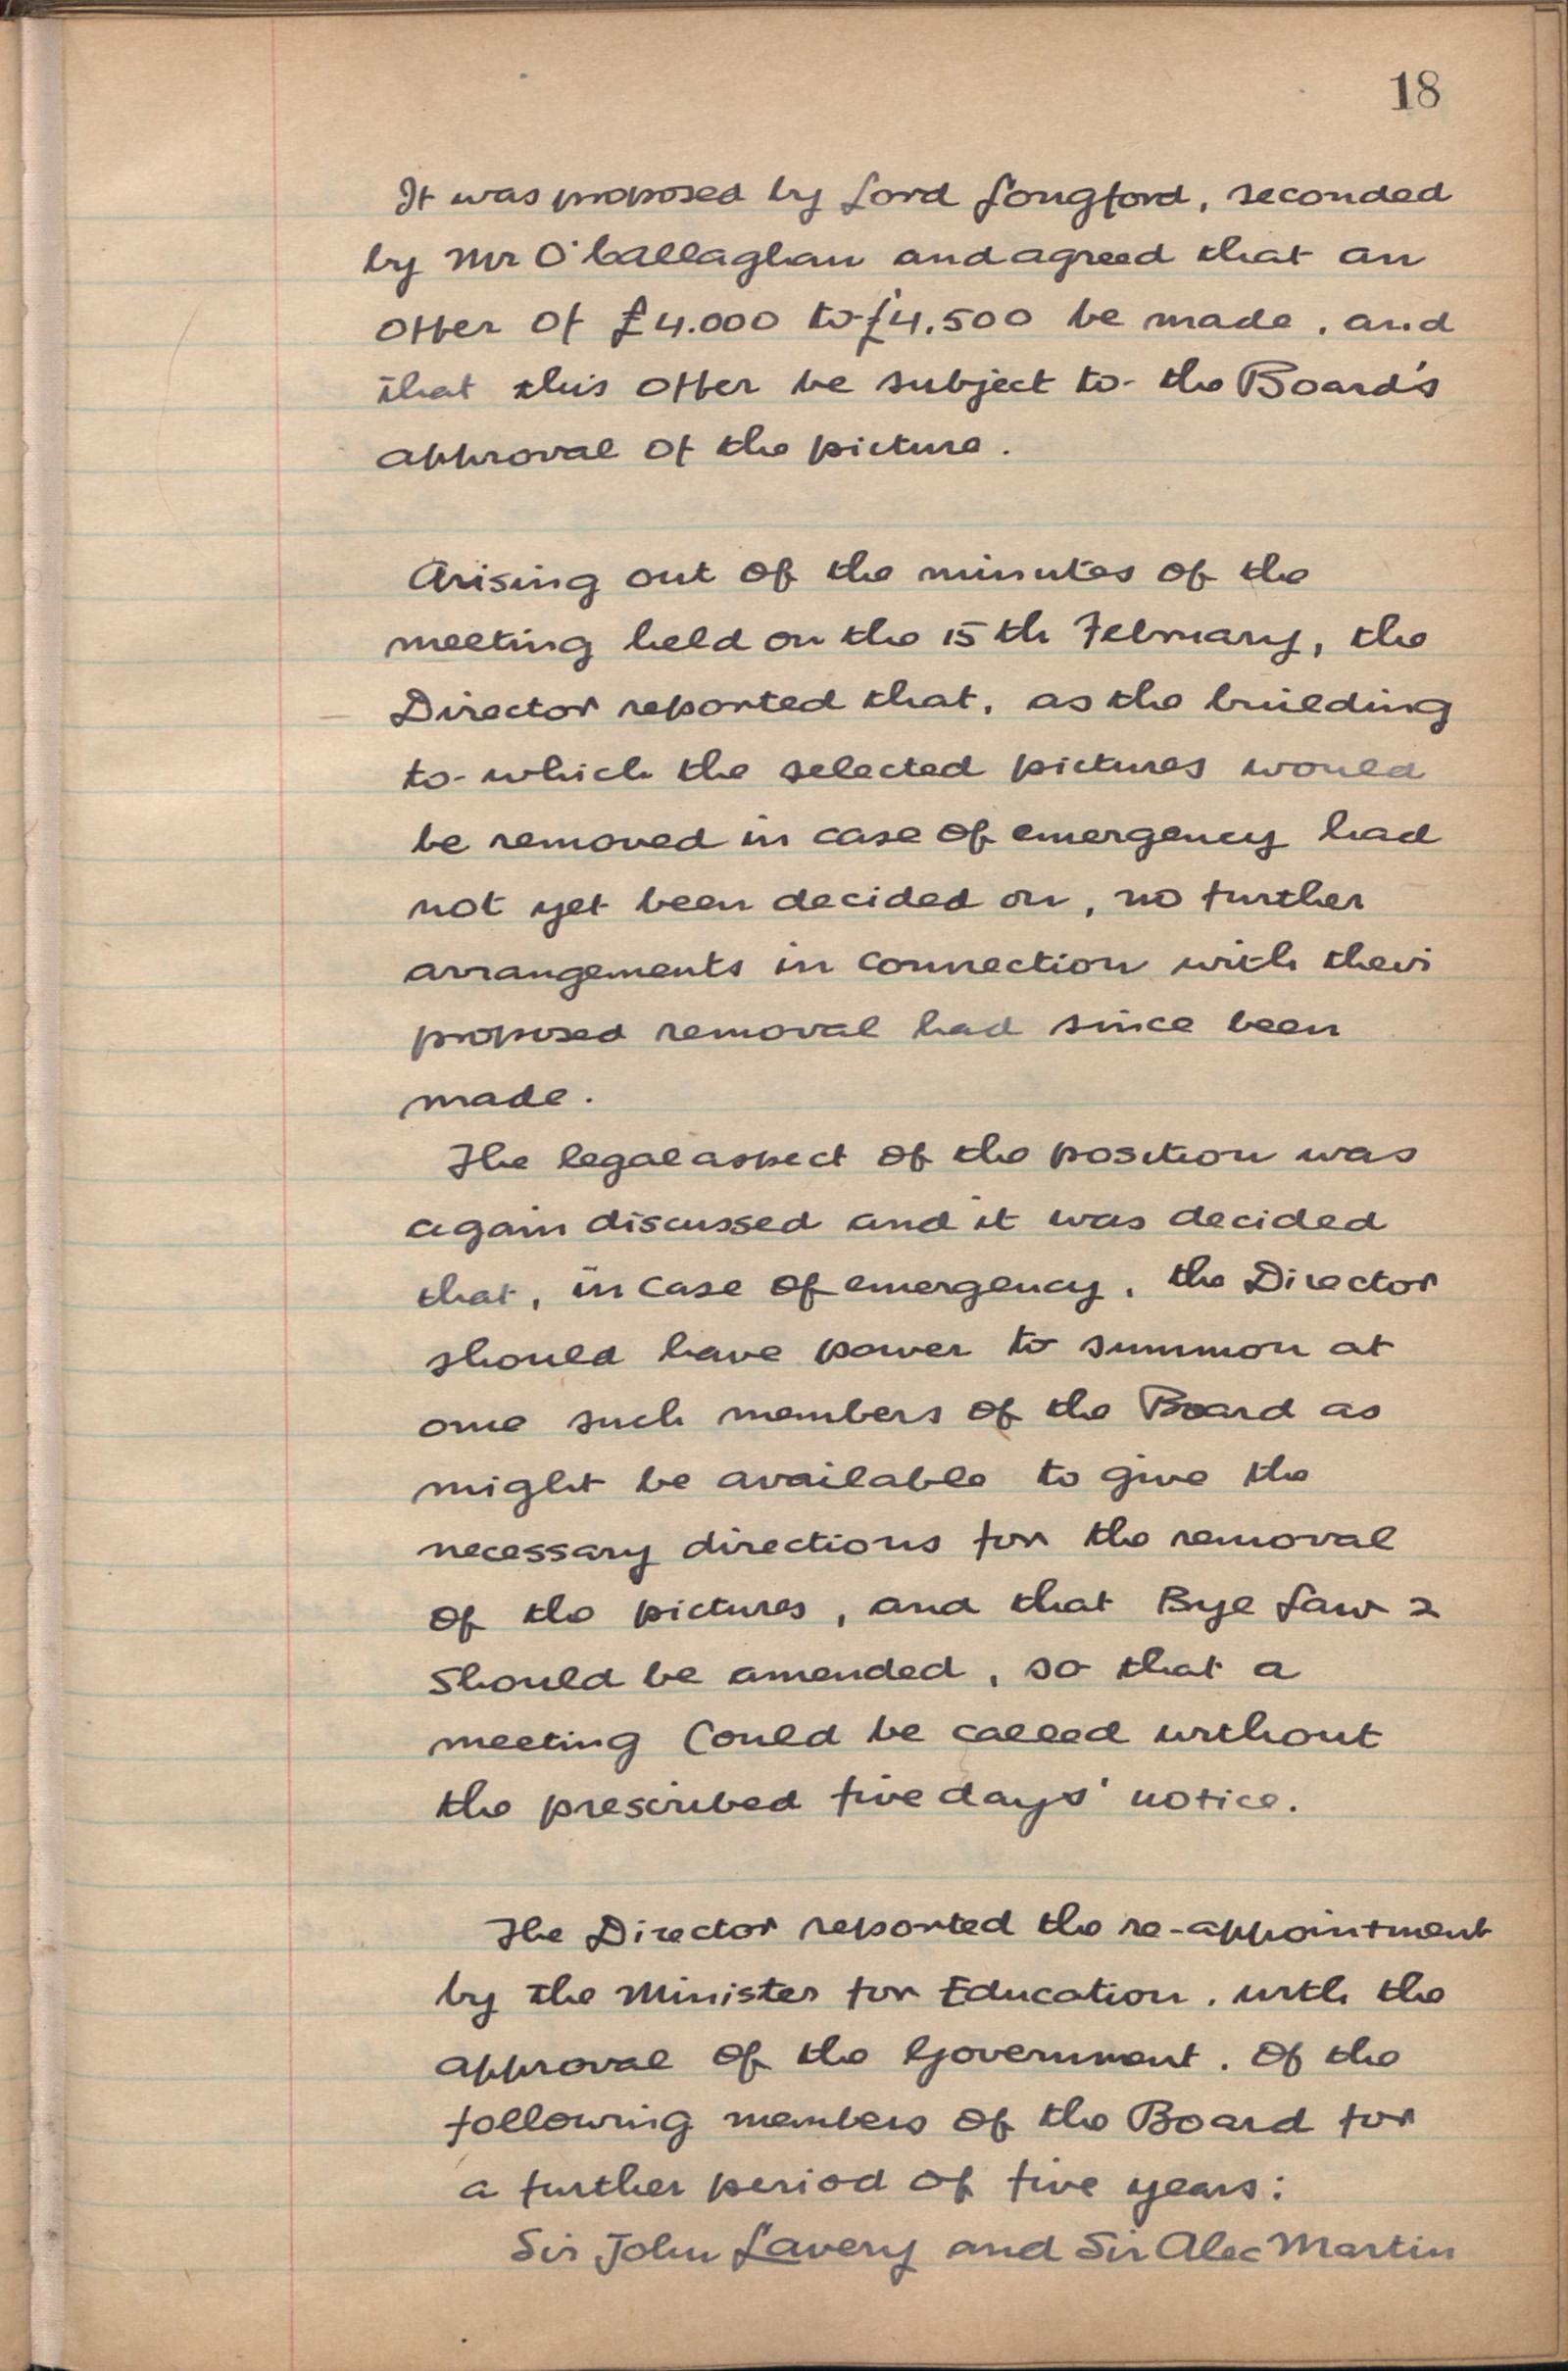 18
It was proposed by Lord Longford, seconded
by Mr O'Callaghan and agreed that an
offer of £4.000 to £4.500 be made, and
that this offer be subject to the Board's
approval of the picture.
Arising out of the minutes of the
meeting held on the 15th February, the
Director reported that, as the building
to which the selected pictures would
be removed in case of emergency had
not yet been decided on, no further
arrangements in connection with their
proposed removal had since been
made.
The legal aspect of the position was
again discussed and it was decided
that, in case of emergency, the Director
should have power to summon at
once such members of the Board as
might be available to give the
necessary directions for the removal
of the pictures, and that Bye Law 2
should be amended, so that a
meeting could be called without
the prescribed five days' notice.
The Director reported the re-appointment
by the Minister for Education, with the
approval of the Government, of the
following members of the Board for
a further period of five years:
Sir John Lavery and Sir Alec Martin